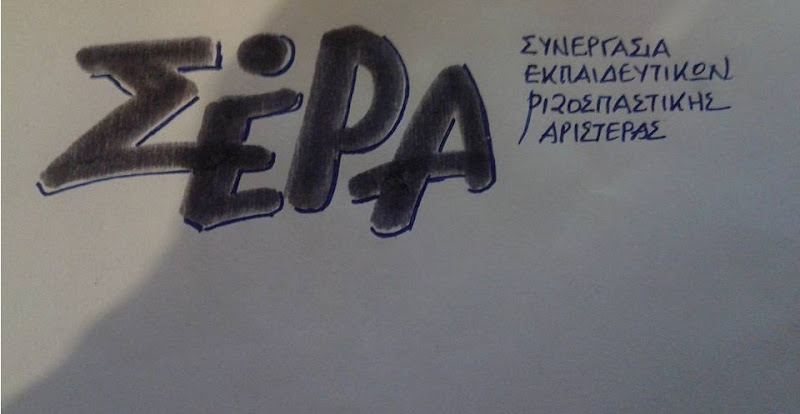 ΣΕΡΑ
ΣΥΝΕΡΓΑΣΙΑ
ΕΚΠΑΙΔΕΥΤΙΚΩΝ
ΡΙΖΟΣΠΑΣΤΙΚΗΣ
ΑΡΙΣΤΕΡΑΣ